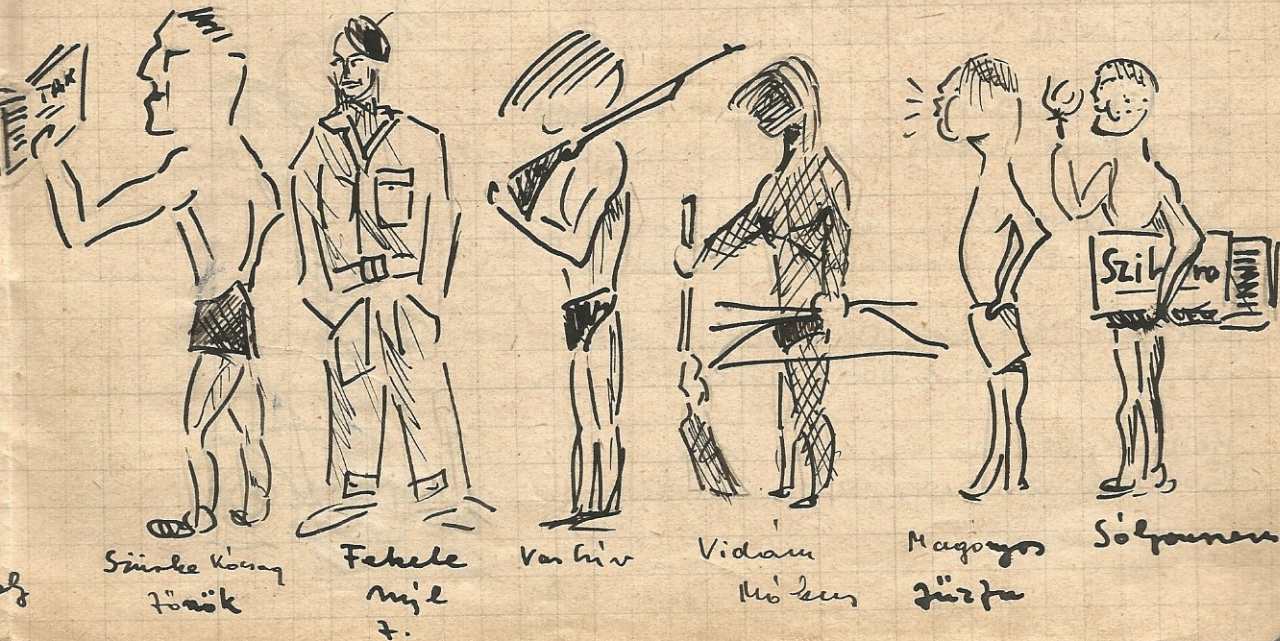 TAK
Szih ro
Szürke Kócsag
Török
Fekete
nyíl
7.
Vas Szív
Vidám
Mókus
Magányos
fűzfa
Sólyomszem